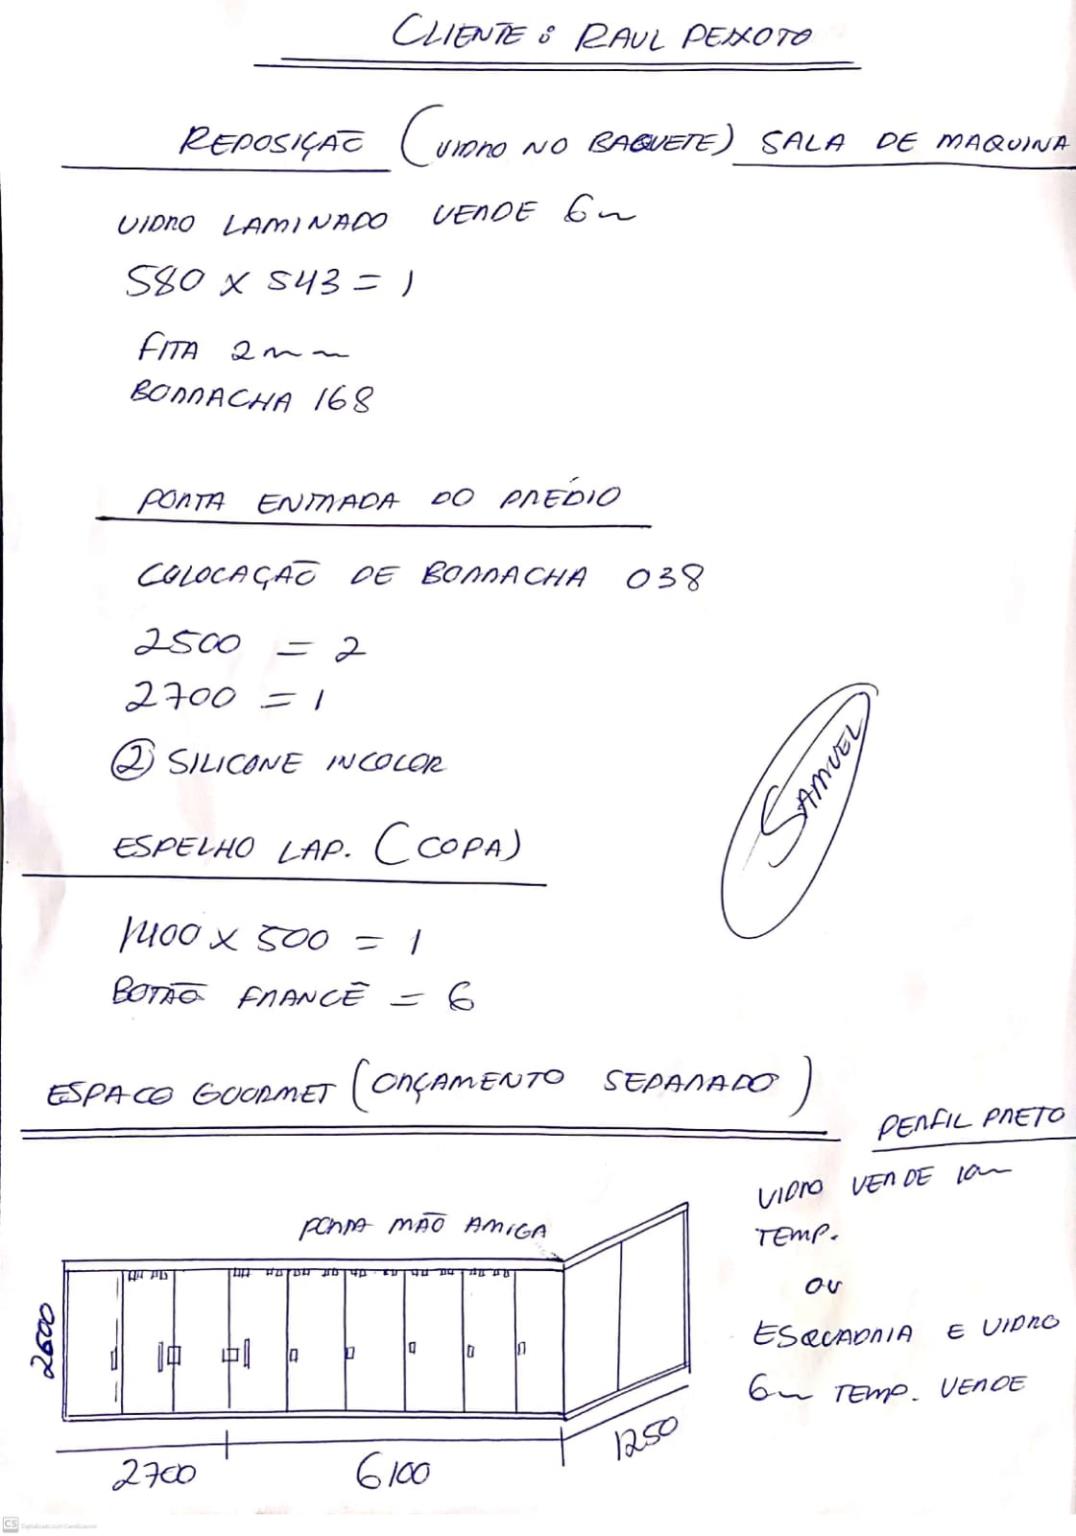 CLIENTE : RAUL PEIXOTO
REPOSIÇÃO (VIDRO NO BAQUETE) SALA DE MAQUINA
VIDRO LAMINADO VERDE 6m
580 x 543 = 1
FITA 2mm
BORRACHA 168
PORTA ENTRADA DO PRÉDIO
COLOCAÇÃO DE BORRACHA 038
2500 = 2
2700 = 1
② SILICONE INCOLOR
SAMUEL
ESPELHO LAP. (COPA)
1400 x 500 = 1
BOTÃO FRANCÊ = 6
ESPACO GOURMET (ORÇAMENTO SEPARADO)
PERFIL PRETO
VIDRO VERDE 10m
TEMP.
OU
ESQUADRIA E VIDRO
6m TEMP. VERDE
PORTA MÃO AMIGA
2600
2700
6100
1250
CS Digitalizado com CamScanner